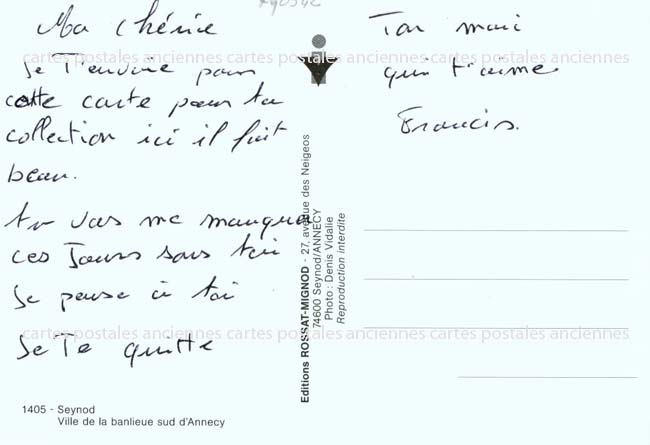 Ma chérie
Je T'envoie pour
cette carte pour ta
collection ici il fait
beau.
tu vas me manquer
ces Jours sans toi
Je pense à toi
Je Te quitte
Ton mari
qui t'aime
Francis.
cartes postales anciennes cartes postales anciennes cartes postales anciennes
cartes postales anciennes cartes postales anciennes cartes postales anciennes
Editions ROSSAT-MIGNOD - 27, avenue des Neigeos
74600 Seynod/ANNECY
Photo : Denis Vidalie
Reproduction interdite
1405 - Seynod
Ville de la banlieue sud d'Annecy